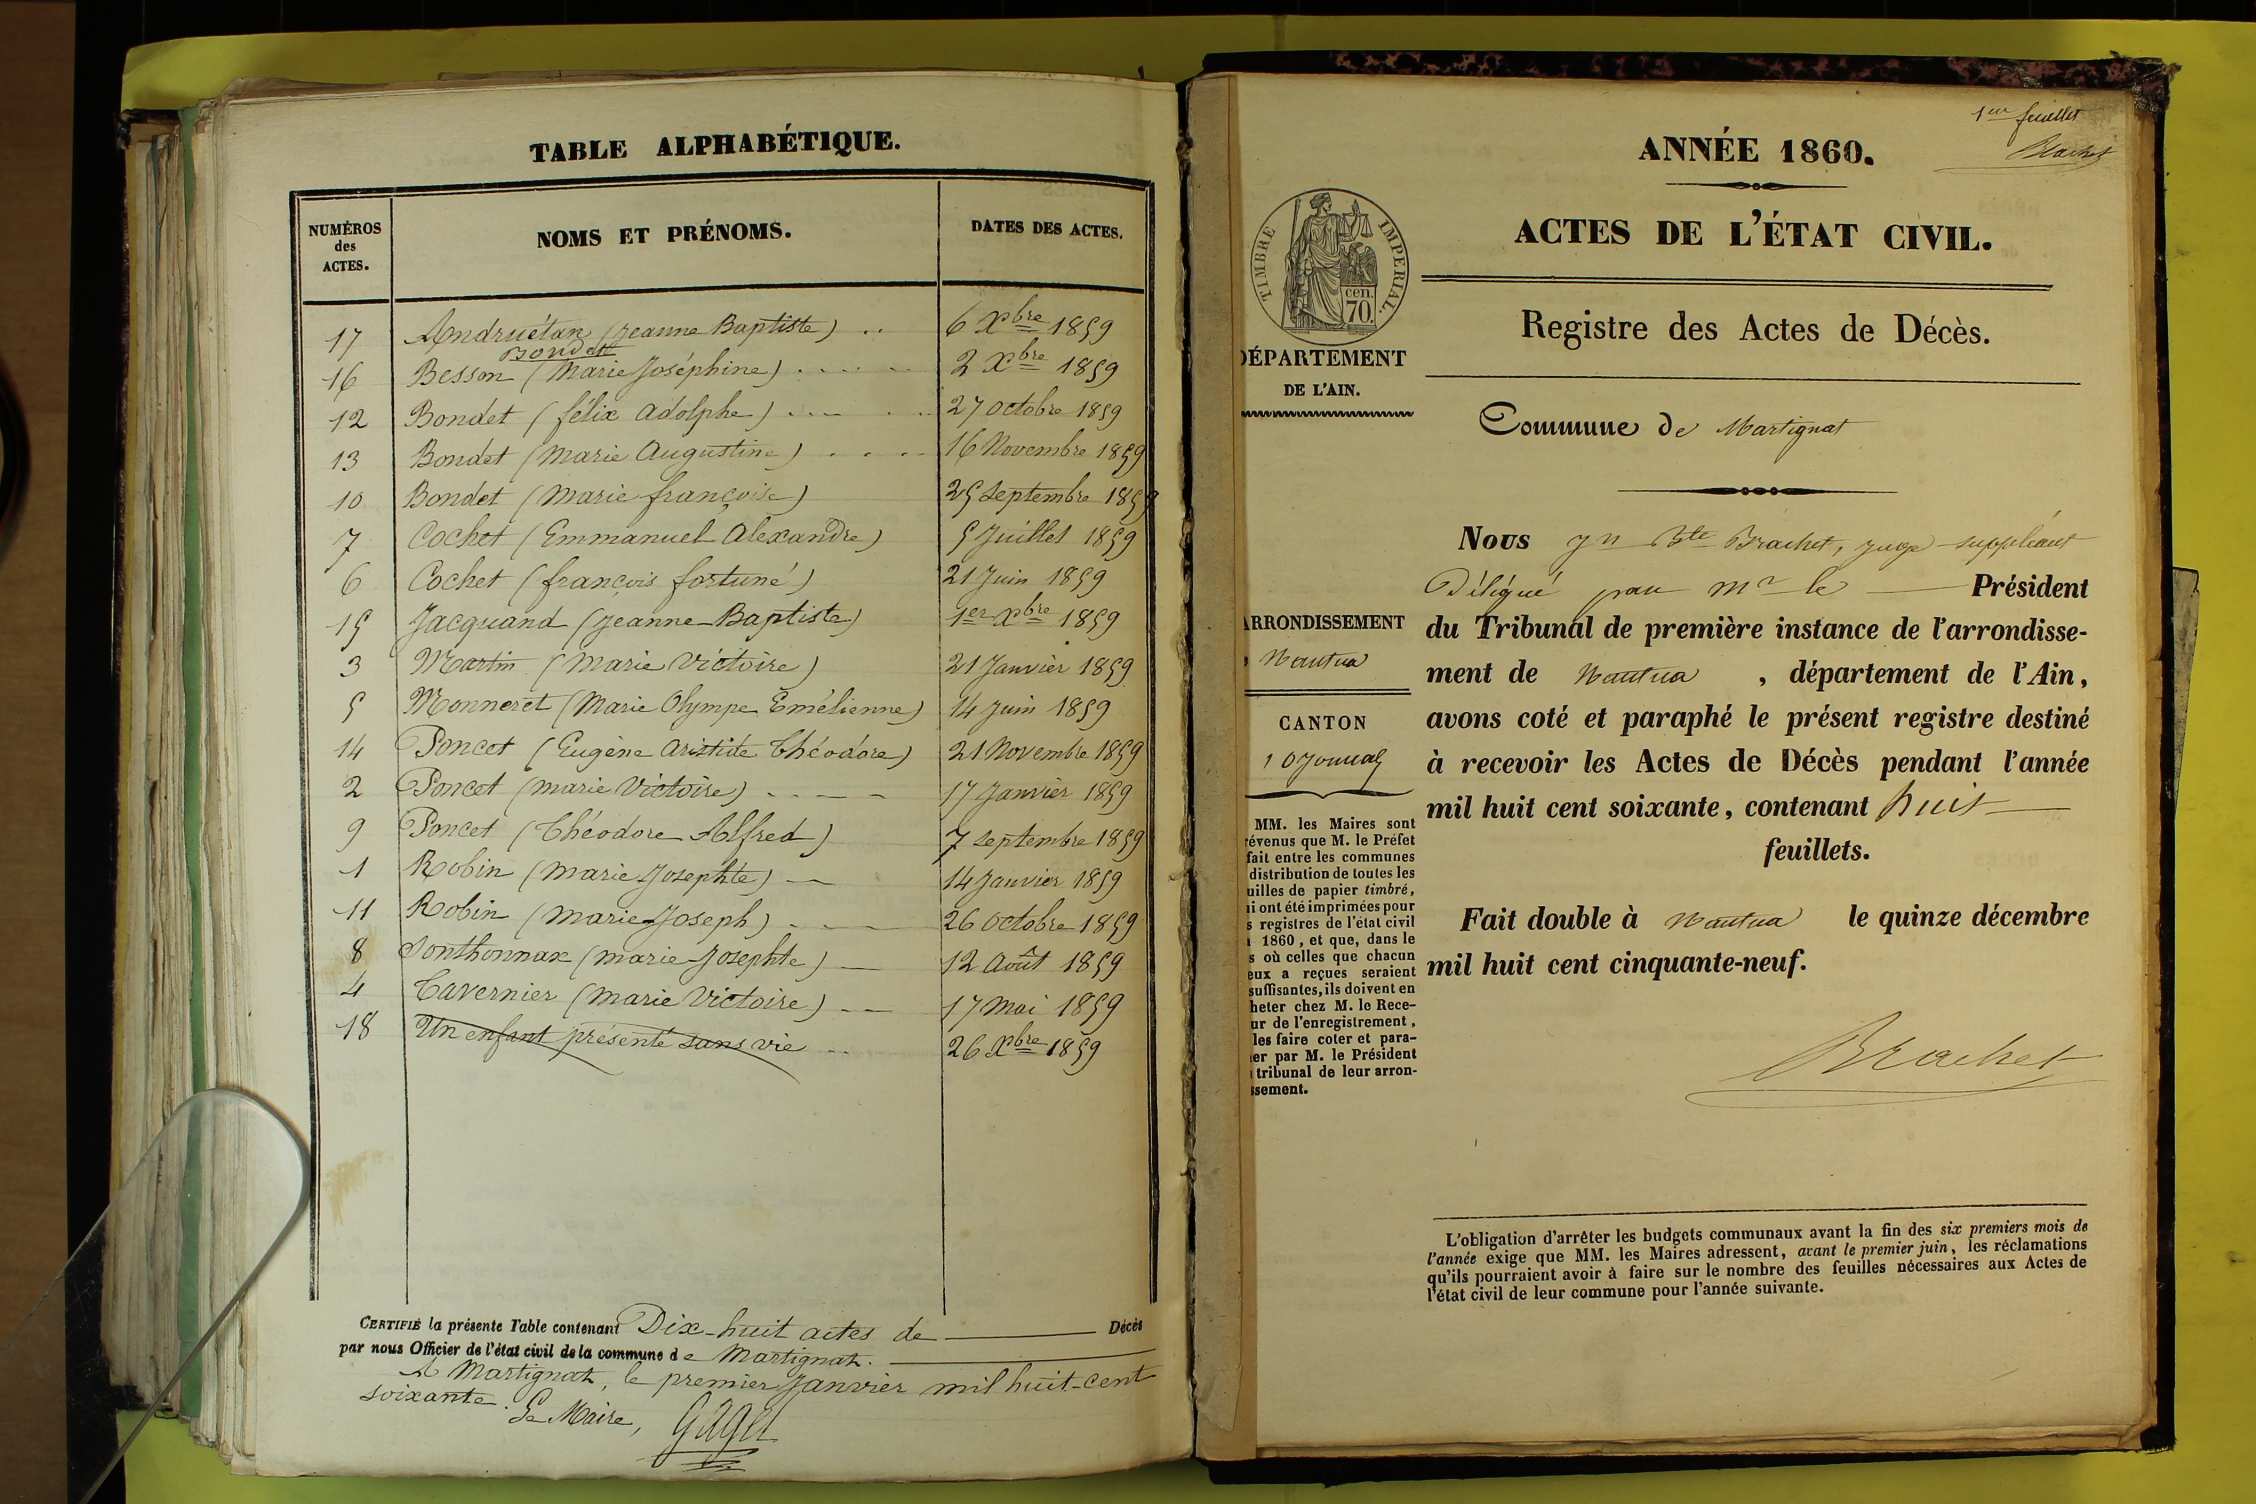 TABLE ALPHABÉTIQUE.
NUMÉROS des ACTES. NOMS ET PRÉNOMS. DATES DES ACTES.
17 Andruétan (Jeanne Baptiste) .. 6 Xbre 1859
Bondet
16 Besson (Marie Joséphine) ..... 2 Xbre 1859
12 Bondet (félix adolphe) ..... 27 octobre 1859
13 Bondet (Marie Augustine) .... 16 Novembre 1859
10 Bondet (Marie françoise) 25 septembre 1859
7 Cochet (Emmanuel Alexandre) 5 Juillet 1859
6 Cochet (françois fortuné) 21 Juin 1859
15 Jacquand (Jeanne-Baptiste) 1er Xbre 1859
3 Martin (Marie Victoire) 21 Janvier 1859
5 Monneret (Marie Olympe Emélienne) 14 Juin 1859
14 Poncet (Eugène Aristide Théodore) 21 Novembre 1859
2 Poncet (Marie Victoire) .---- 17 Janvier 1859
9 Poncet (Théodore Alfred) 7 septembre 1859
1 Robin (Marie Josephte) — 14 Janvier 1859
11 Robin (Marie-Joseph) .--- 26 octobre 1859
8 Sonthonnax (Marie-Josephte) — 12 Août 1859
4 Tavernier (Marie Victoire) -- 17 Mai 1859
18 Un enfant présenté sans vie .. 26 Xbre 1859
CERTIFIÉ la présente Table contenant Dix-huit actes de — Décès
par nous Officier de l'état civil de la commune de Martignat.
A Martignat, le premier Janvier mil huit-cent
soixante.
Le Maire,
1er feuillet
Brachet
ANNÉE 1860.
ACTES DE L'ÉTAT CIVIL.
TIMBRE IMPÉRIAL.
cen. 70.
Registre des Actes de Décès.
DÉPARTEMENT
DE L'AIN.
Commune de Martignat
Nous Jn Bte Brachet, juge suppléant
Délégué par Mr le — Président
du Tribunal de première instance de l'arrondisse-
ment de Nantua, département de l'Ain,
avons coté et paraphé le présent registre destiné
à recevoir les Actes de Décès pendant l'année
mil huit cent soixante, contenant huit —
feuillets.
Fait double à Nantua le quinze décembre
mil huit cent cinquante-neuf.
Brachet
ARRONDISSEMENT
Nantua
CANTON
Oyonnax
MM. les Maires sont
révenus que M. le Préfet
fait entre les communes
distribution de toutes les
uilles de papier timbré,
i ont été imprimées pour
s registres de l'état civil
1860, et que, dans le
s où celles que chacun
eux a reçues seraient
suffisantes, ils doivent en
heter chez M. le Rece-
ur de l'enregistrement,
les faire coter et para-
er par M. le Président
tribunal de leur arron-
ssement.
L'obligation d'arrêter les budgets communaux avant la fin des six premiers mois de
l'année exige que MM. les Maires adressent, avant le premier juin, les réclamations
qu'ils pourraient avoir à faire sur le nombre des feuilles nécessaires aux Actes de
l'état civil de leur commune pour l'année suivante.